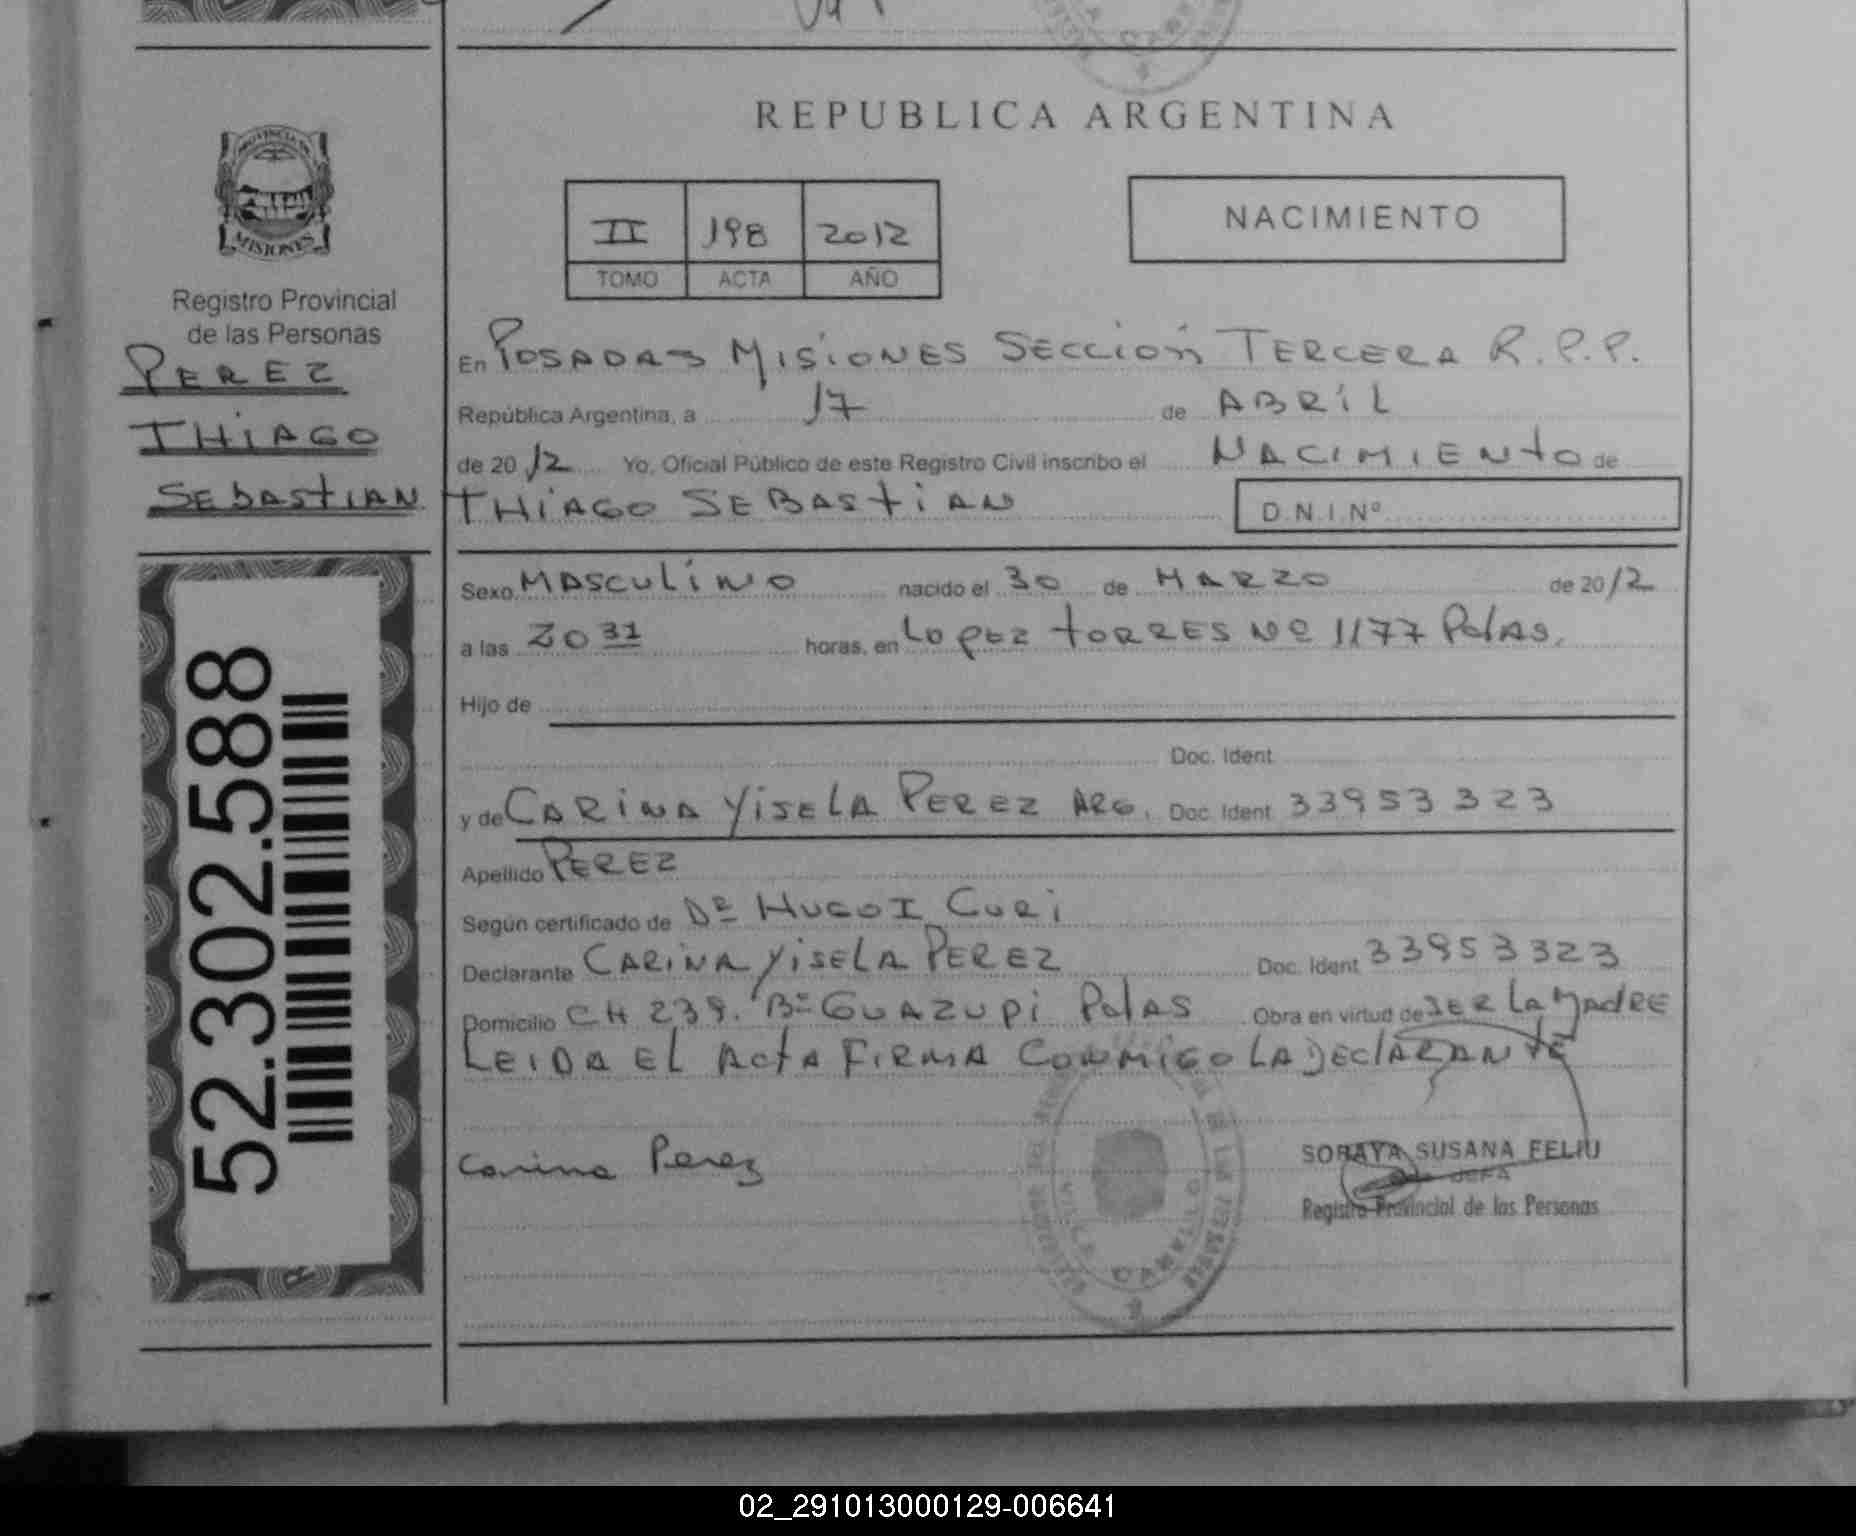 REPUBLICA ARGENTINA
PROVINCIA DE
MISIONES
Registro Provincial
de las Personas
PEREZ
THIAGO
SEBASTIAN
52.302.588
II 198 2012
TOMO ACTA AÑO
NACIMIENTO
En POSADAS MISIONES SECCIÓN TERCERA R.P.P.
República Argentina, a 17 de ABRIL
de 2012 Yo, Oficial Público de este Registro Civil inscribo el NACIMIENTO de
THIAGO SEBASTIAN D.N.I.Nº
Sexo MASCULINO nacido el 30 de MARZO de 2012
a las 20 31 horas, en LOPEZ TORRES Nº 1177 Pdas.
Hijo de
Doc. Ident
y de CARINA YISELA PEREZ ARG. Doc. Ident 33953323
Apellido PEREZ
Según certificado de Dr HUGO I CURI
Declarante CARINA YISELA PEREZ Doc. Ident 33953323
Domicilio CH 239. Bº GUAZUPI PdAS Obra en virtud de SER LA MADRE
LEIDA EL ACTA FIRMA CONMIGO LA DECLARANTE
Carina Perez
SORAYA SUSANA FELIU
JEFA
Registro Provincial de las Personas
02_291013000129-006641